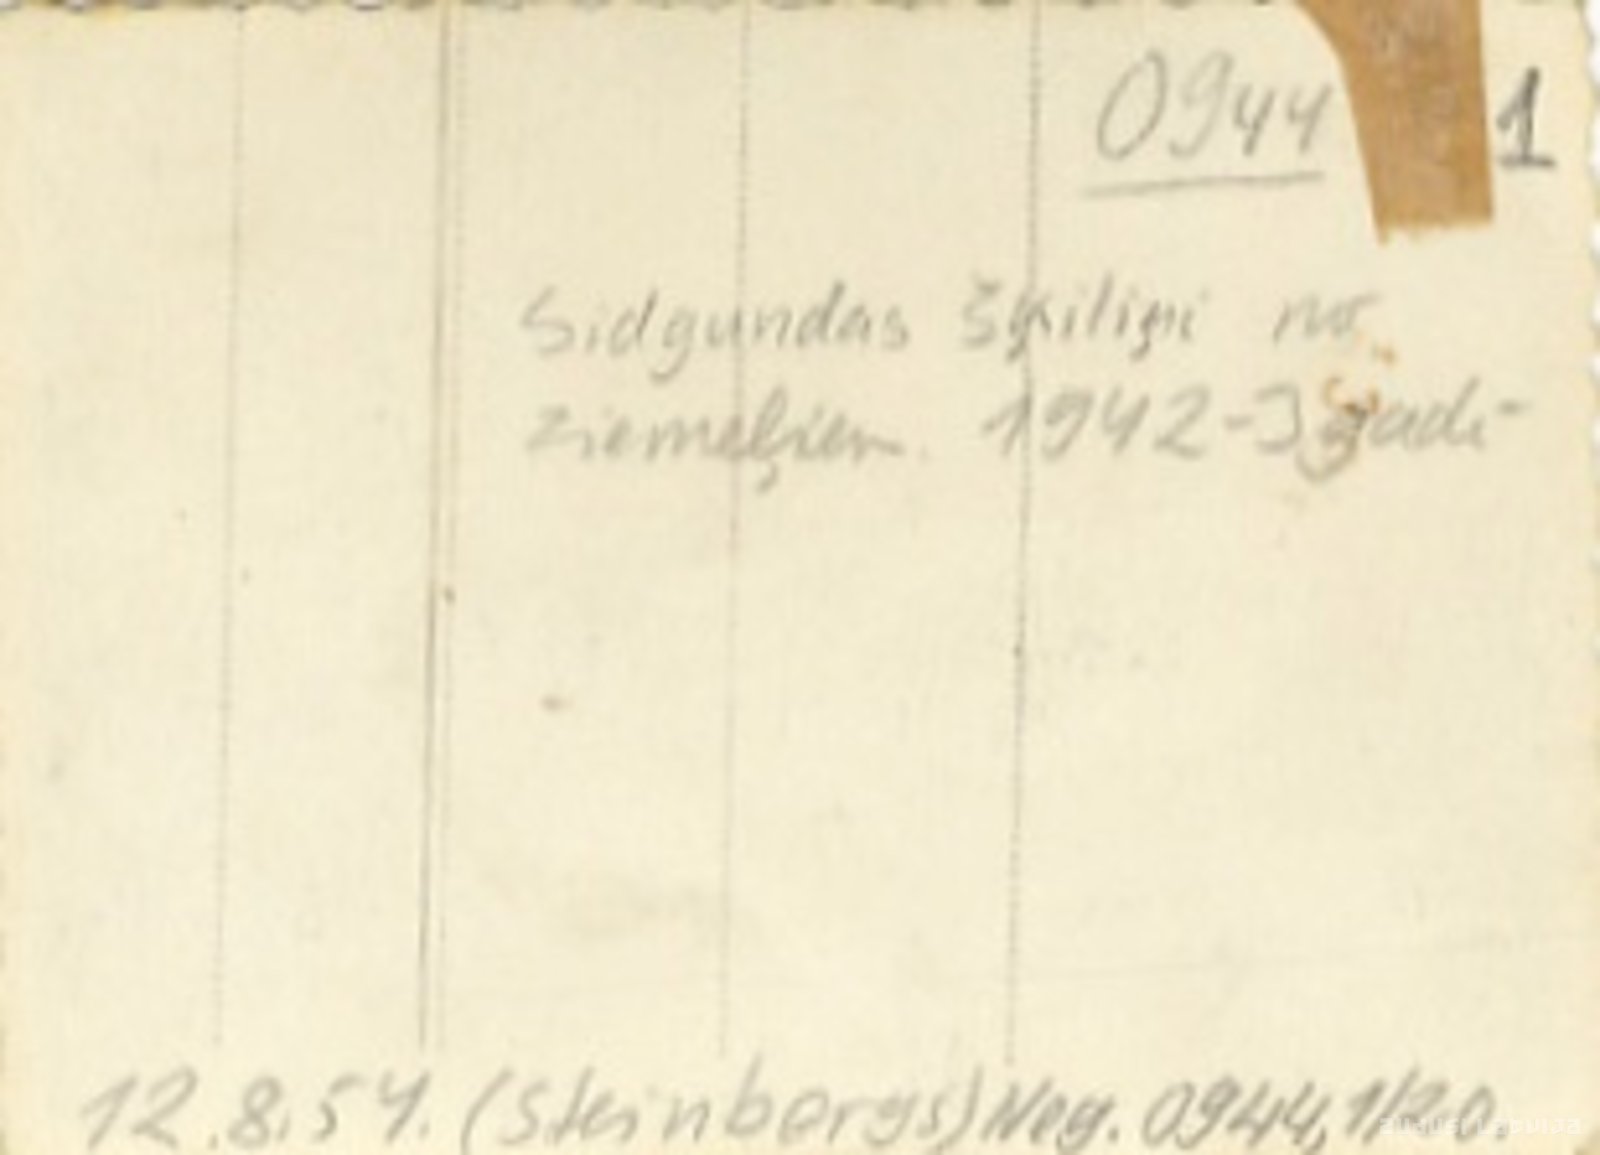 0944 1
Sidgundas šķiliņi no
ziemeļiem. 1942-3 gadi
12.8.54. (Steinbergs) Neg. 0944, 1/20